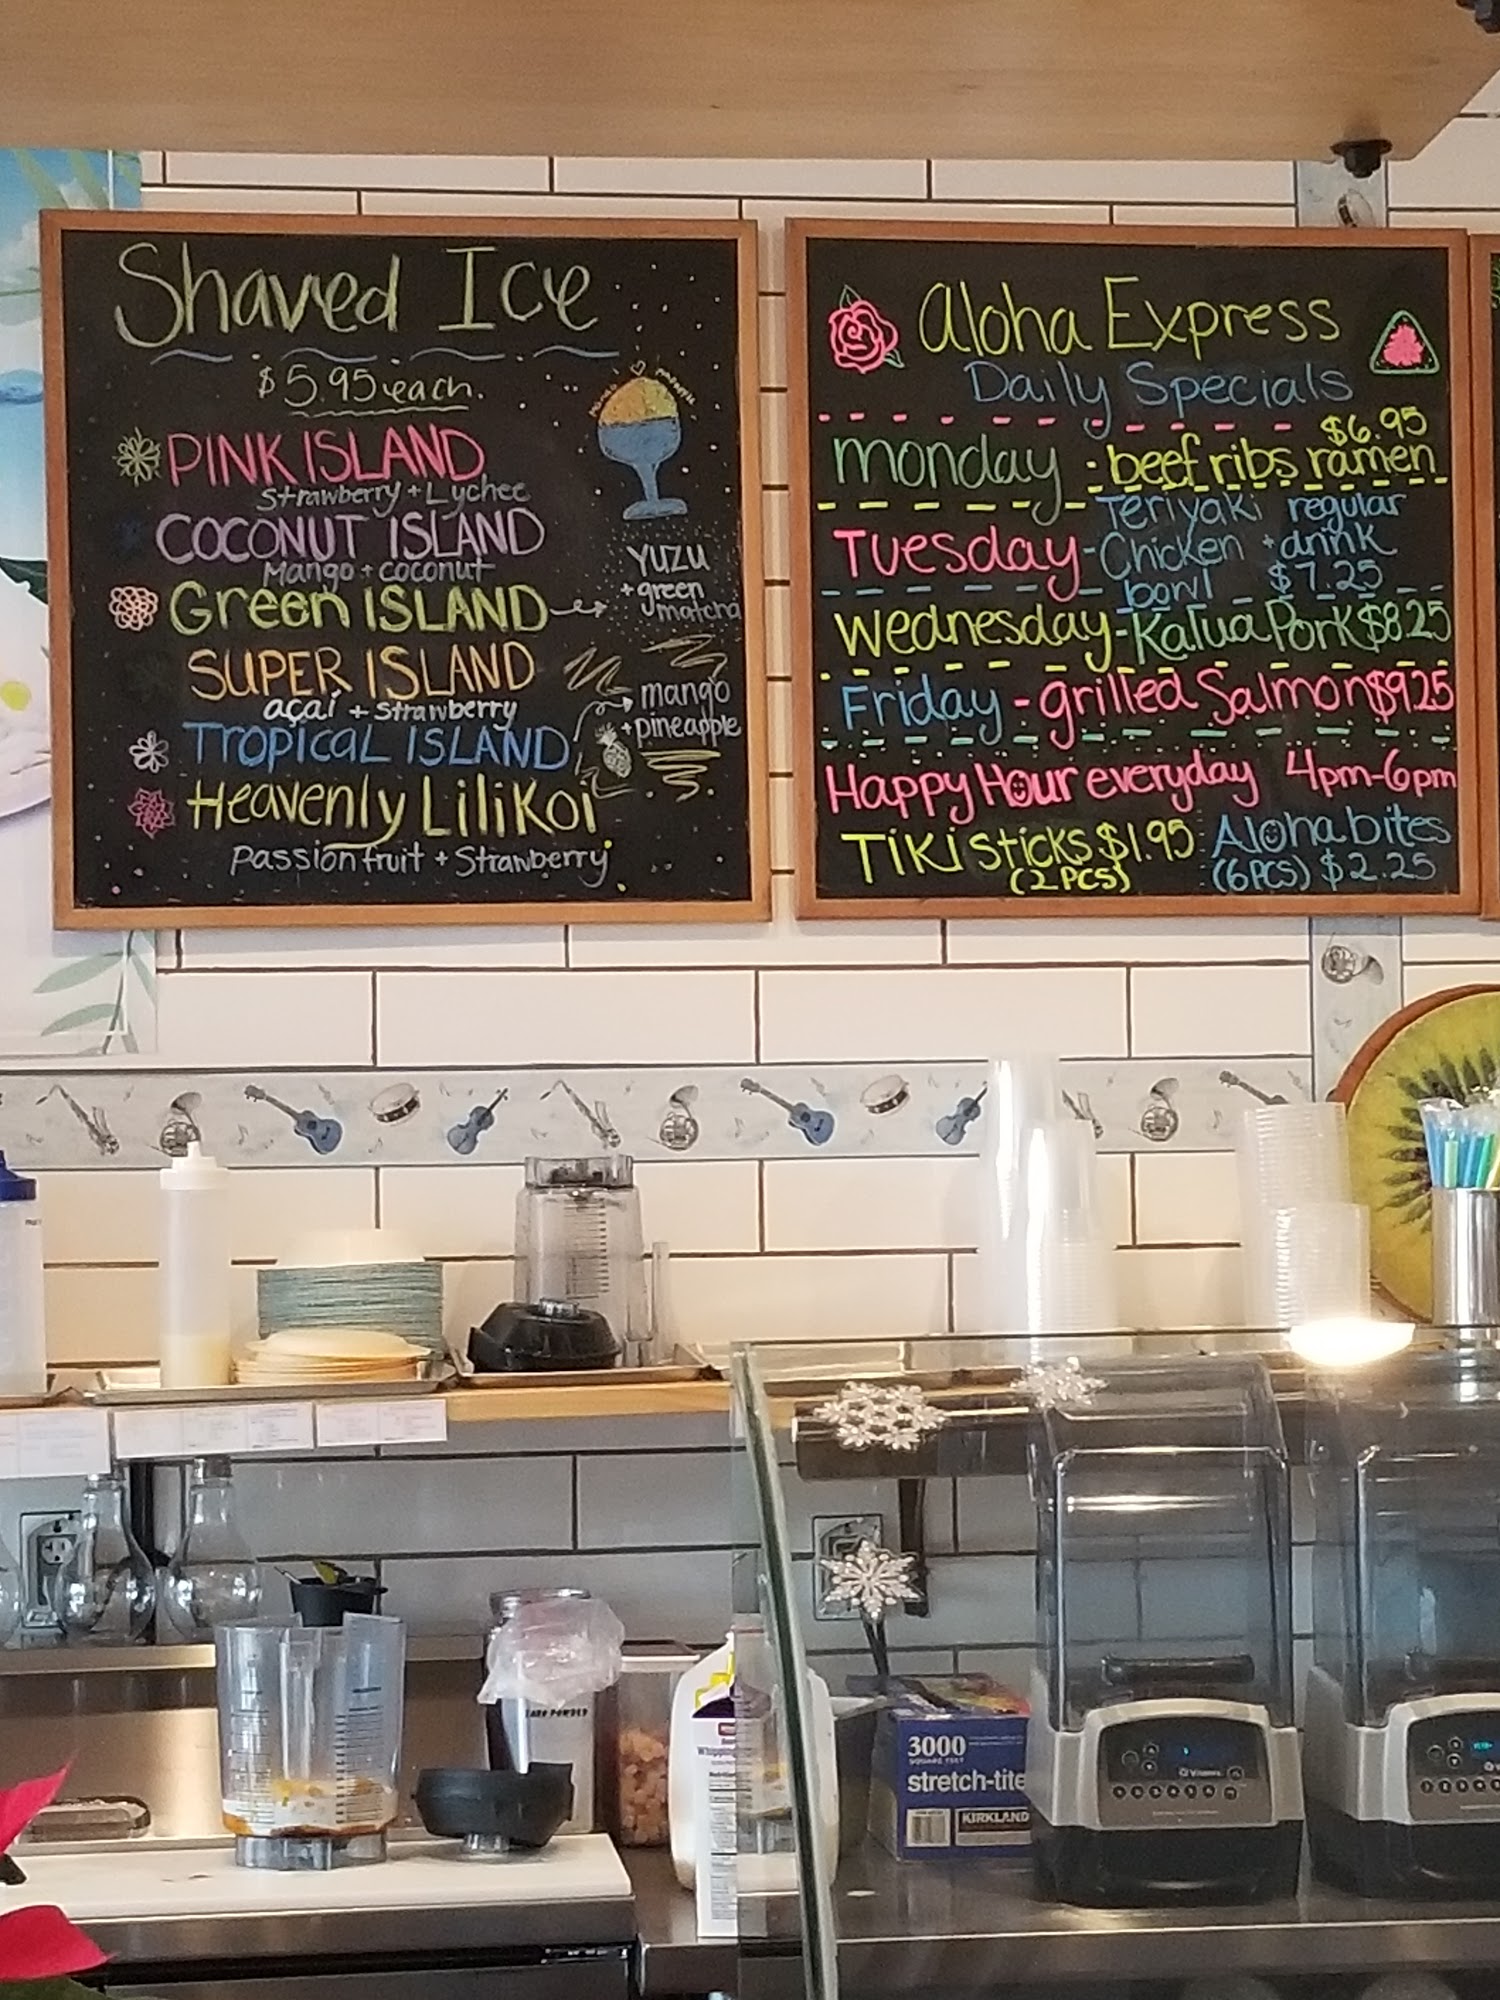 Shaved Ice
$5.95 each.
PINK ISLAND
Strawberry + Lychee
COCONUT ISLAND
Mango + coconut
Green ISLAND
YUZU
+ green
matcha
SUPER ISLAND
açaí + Strawberry
TROPICAL ISLAND
mango
+ pineapple
Heavenly LiliKoi
Passion fruit + Strawberry
Aloha Express
Daily Specials
Monday - beef ribs ramen
$6.95
Tuesday - Teriyaki regular
Chicken + drink
bowl $7.25
Wednesday - Kalua Pork $8.25
Friday - grilled Salmon $9.25
Happy Hour everyday 4pm-6pm
TIKI Sticks $1.95
(2 PCS)
Aloha bites
(6 PCS) $2.25
TARO POWDER
3000
SQUARE FEET
stretch-tite
KIRKLAND